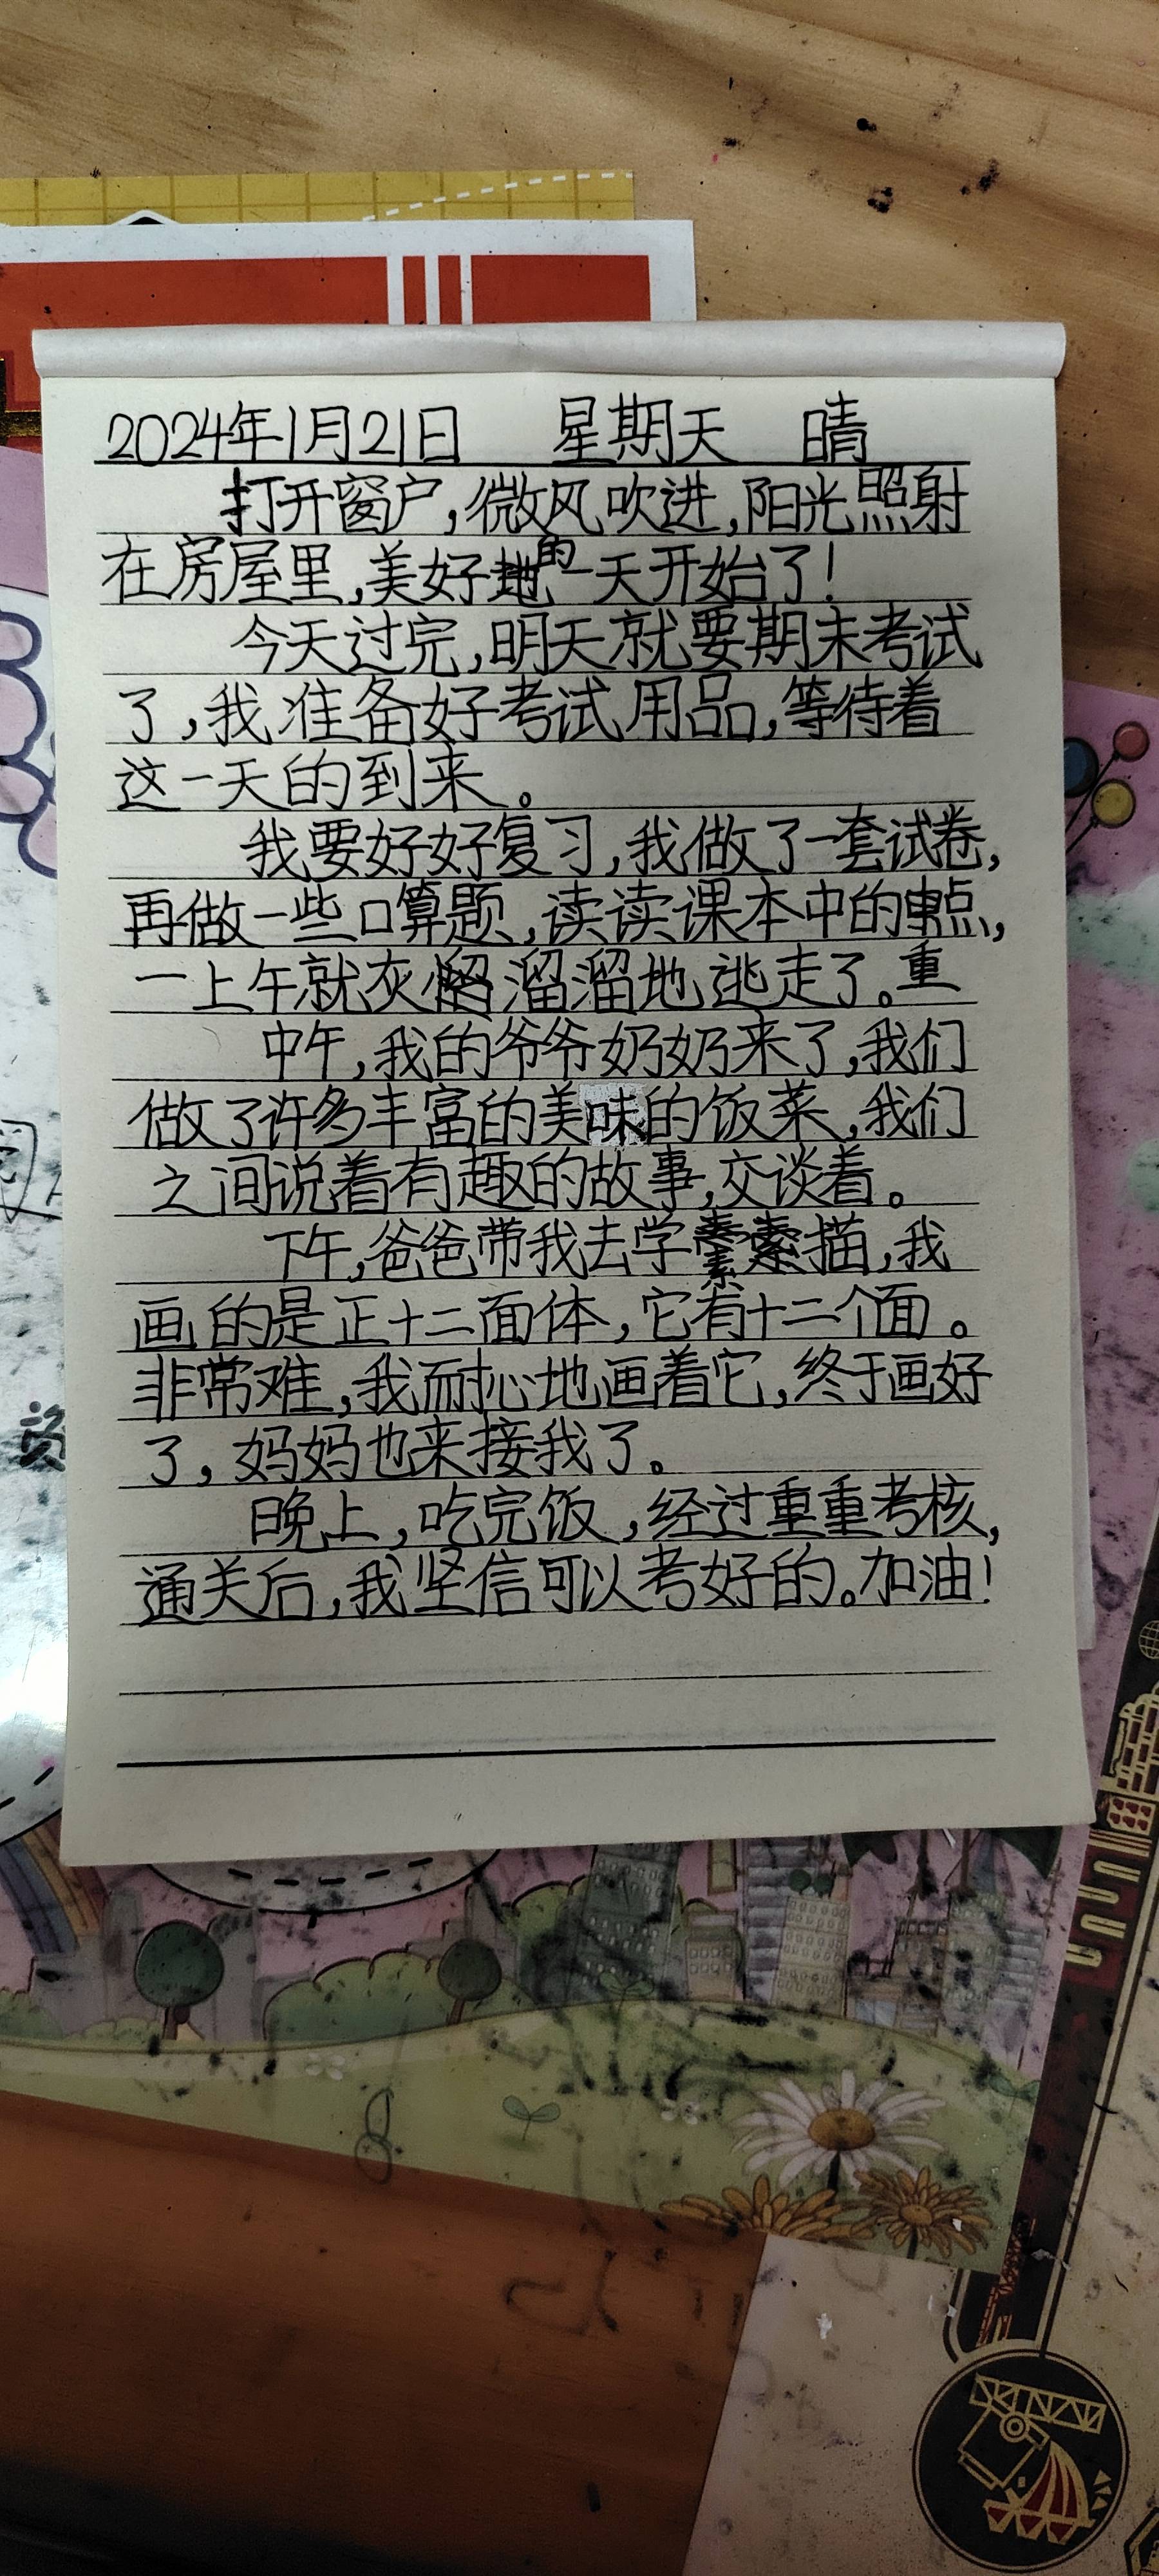 2024年1月21日 星期天 晴
打开窗户,微风吹进,阳光照射
在房屋里,美好的一天开始了!
今天过完,明天就要期末考试
了,我准备好考试用品,等待着
这一天的到来。
我要好好复习,我做了一套试卷,
再做一些口算题,读读课本中的重点,
一上午就灰溜溜地逃走了。
中午,我的爷爷奶奶来了,我们
做了许多丰富的美味的饭菜,我们
之间说着有趣的故事,交谈着。
下午,爸爸带我去学素描,我
画的是正十二面体,它有十二个面。
非常难,我耐心地画着它,终于画好
了,妈妈也来接我了。
晚上,吃完饭,经过重重考核,
通关后,我坚信可以考好的。加油!